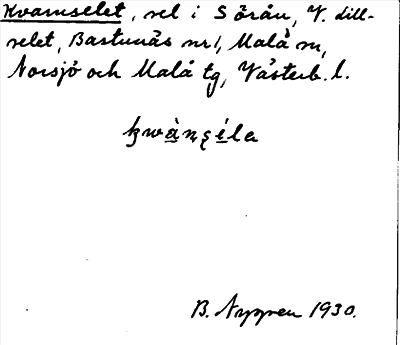 Kvarnselet, sel i Sörån, V. Lill-
selet, Bastunäs nr 1, Malå sn,
Norsjö och Malå tg, Västerb. l.
kwàṇṣéla
B. Nygren 1930.